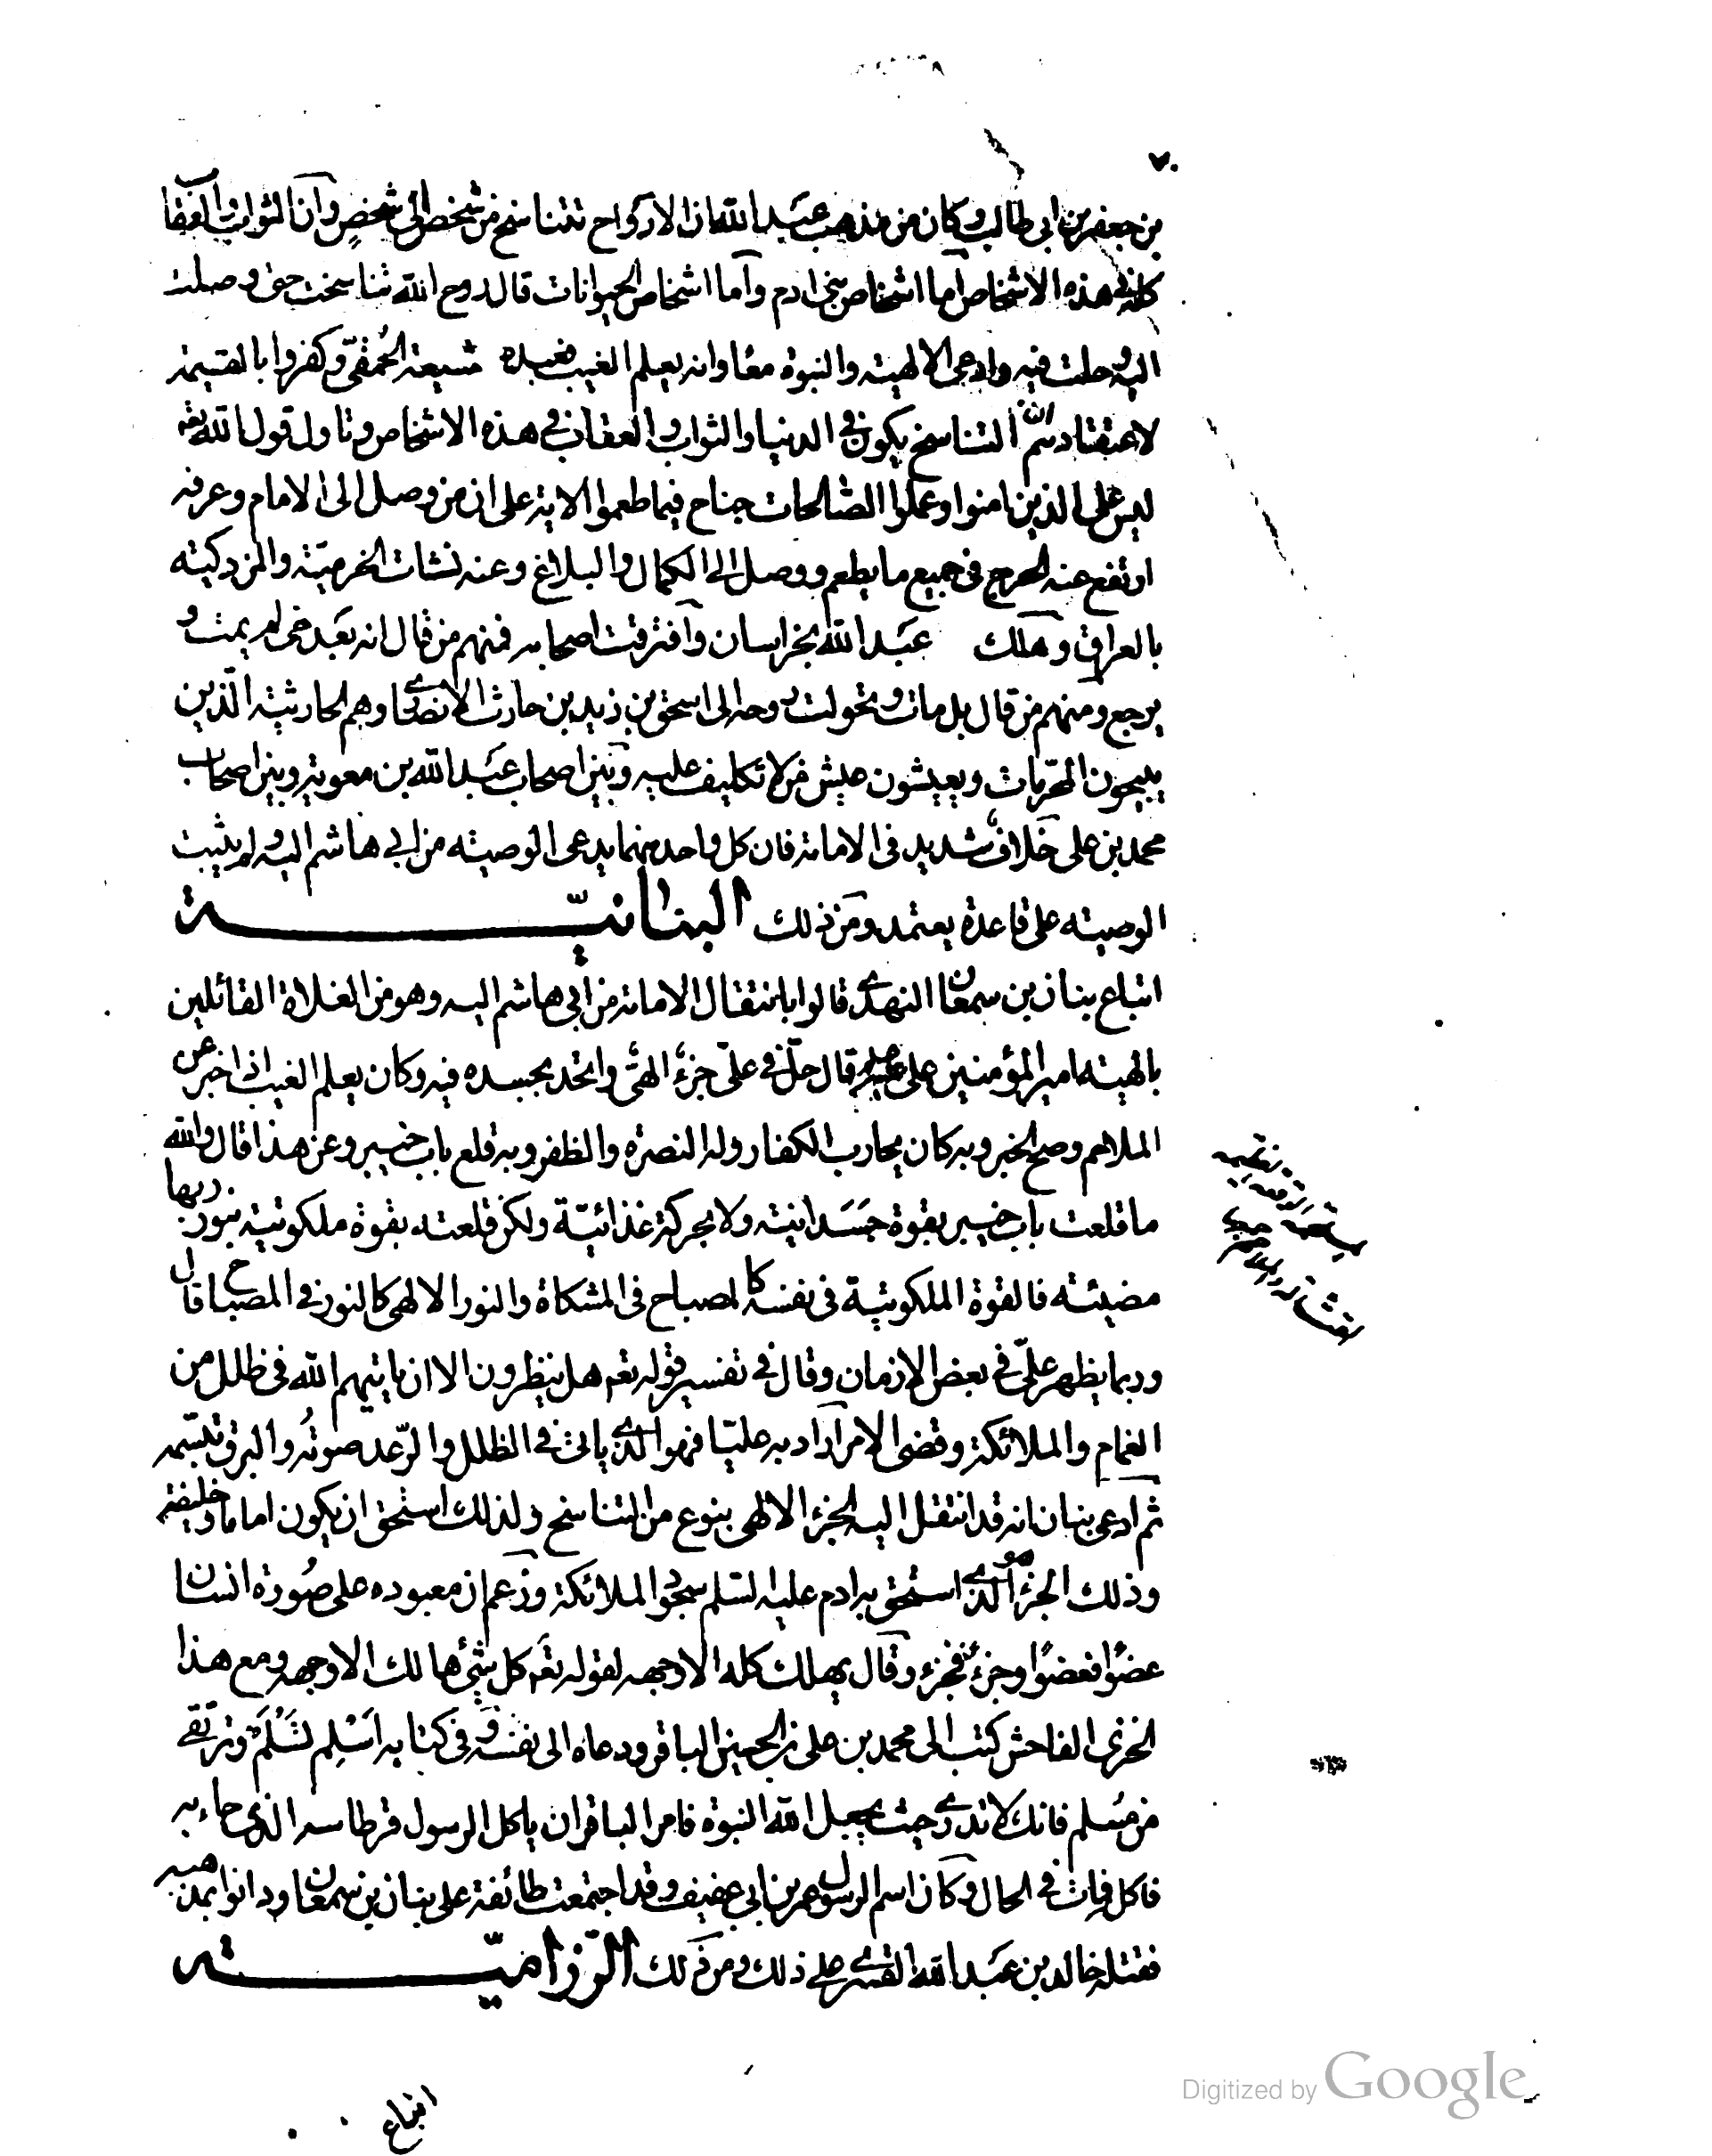 ٧٠
بن جعفر بن ابى طالب وكان من مذهب عبد الله ان الارواح تتناسخ من شخص الى شخص وان الثواب والعقاب
كله فى هذه الاشخاص اما اشخاص بنى ادم واما اشخاص الحيوانات قال وروح الله تناسخت حتى وصلت
اليه وحلت فيه وادعى الالهية والنبوة معا وانه يعلم الغيب فعبده شيعته الحمقى وكفروا بالقيمة
لاعتقادهم ان التناسخ يكون فى الدنيا والثواب والعقاب فى هذه الاشخاص وتاول قول الله تع
ليس على الذين امنوا وعملوا الصالحات جناح فيما طعموا الاية على ان من وصل الى الامام وعرفه
ارتفع عنه الحرج فى جميع ما يطعم ووصل الى الكمال والبلاغ وعنه نشات الخرمية والمزدكية
بالعراق وهلك عبد الله بخراسان وافترقت اصحابه فمنهم من قال انه بعد حى لم يمت و
يرجع ومنهم من قال بل مات وتحولت روحه الى اسحق بن زيد بن حارث الانصارى وهم الحارثية الذين
يبيحون المحرمات ويعيشون عيش من لا تكليف عليه وبين اصحاب عبد الله بن معوية وبين اصحاب
محمد بن على خلاف شديد فى الامامة فان كل واحد منهما يدعى الوصية من ابى هاشم اليه ولم يثبت
الوصية على قاعدة يعتمد ومن ذلك البنانيّة
اتباع بنان بن سمعان النهدى قالوا بانتقال الامامة من ابى هاشم اليه وهو من الغلاة القائلين
بالهية امير المؤمنين على قال حلّ فى علىّ جزء الهى واتحد بجسده فيه وكان يعلم الغيب اذ اخبر عن
الملاحم وصح الخبر وبه كان يحارب الكفار وله النصرة والظفر وبه قلع باب خيبر وعن هذا قال والله
ما قلعت باب خيبر بقوة جسدانية ولا بحركة غذائيّة ولكن قلعته بقوة ملكوتية بنور ربها
مضيئة فالقوة الملكوتية فى نفسه كالمصباح فى المشكاة والنور الالهى كالنور فى المصباح قال
وربما يظهر علىّ فى بعض الازمان وقال فى تفسير قوله تع هل ينظرون الا ان ياتيهم الله فى ظلل من
الغمام والملائكة وقضى الامر اراد به عليّا فهو الذى ياتى فى الظلل والرّعد صوته والبرق تبسّمه
ثم ادعى بنان انه قد انتقل اليه الجزء الالهى بنوع من التناسخ ولذلك استحق ان يكون اماما وخليفة
وذلك الجزء هو الذى استحق به ادم عليه السلم سجود الملائكة وزعم ان معبوده على صورة انسان
عضوا فعضوا وجزء فجزء وقال يهلك كله الا وجهه لقوله تع كل شئ هالك الا وجهه ومع هذا
الخزى الفاحش كتب الى محمد بن على بن الحسين الباقر ودعاه الى نفسه وفى كتابه اسلم تسلم وترتقى
من مسلم فانك لا تدرى حيث يجعل الله النبوة فامر الباقر ان ياكل الرسول قرطاسه الذى جاء به
فاكل فمات فى الحال وكان اسم الرسول عمر بن ابى عفيف وقد اجتمعت طائفة على بنان بن سمعان ودانوا بمذهبه
فقتله خالد بن عبد الله القسرى على ذلك ومن ذلك الرّزاميّة
اتباع
Digitized by Google